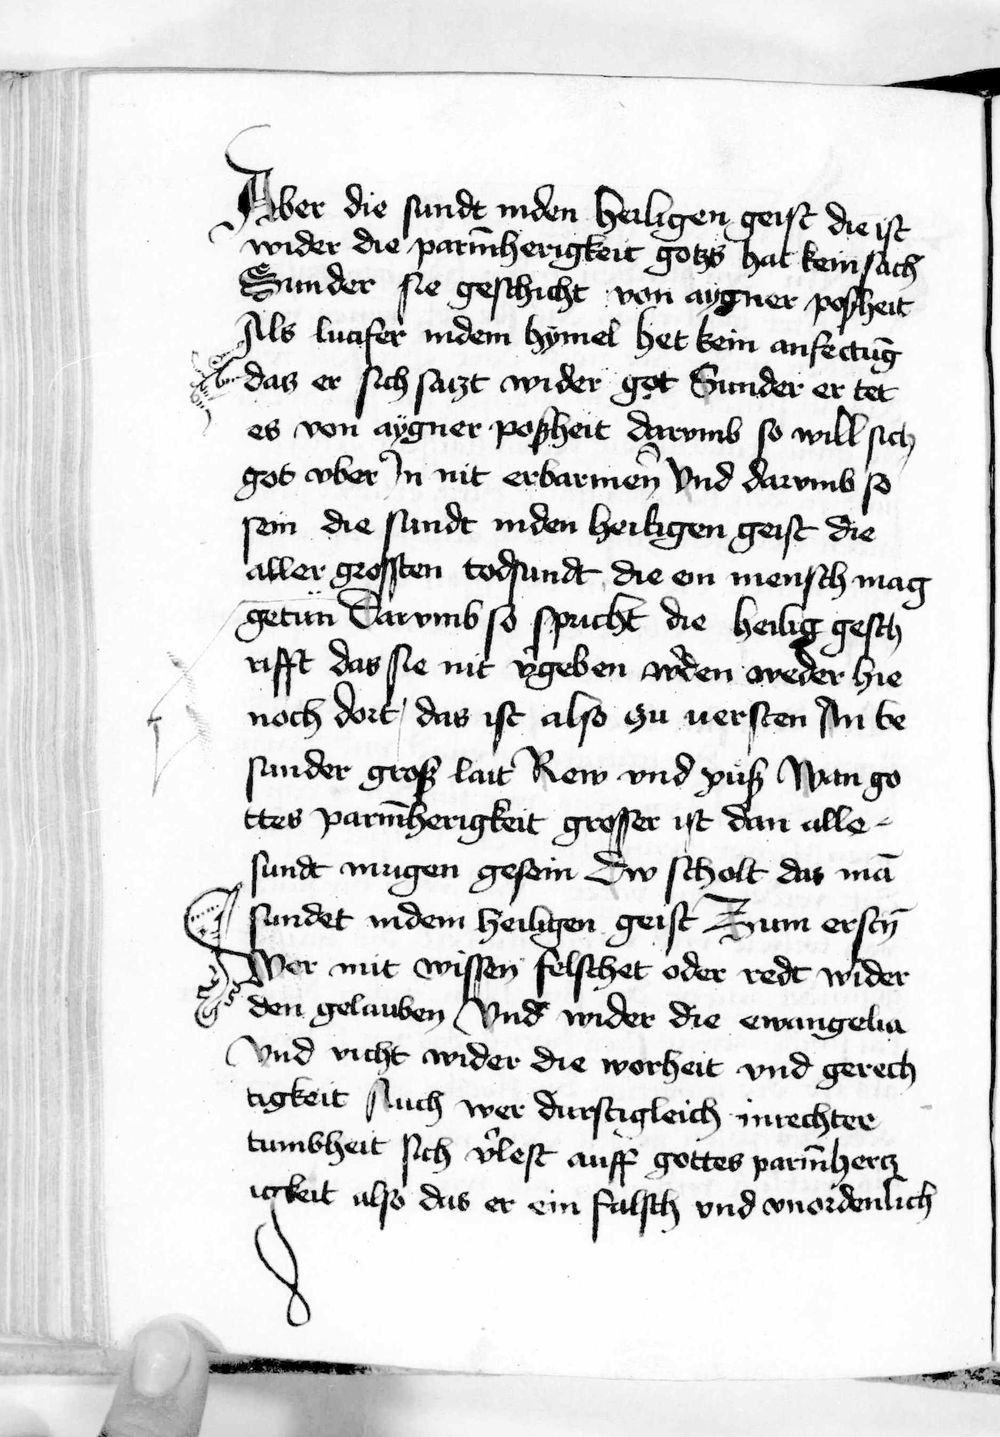 Aber die sundt inden heiligen geist die ist
wider die parm̄herigkeit gotzs hat kein sach
Sunder sie geschicht von aygner poßheit
Als lucifer indem hymel het kein anfectūg
das er sich satzt wider got Sunder er tet
es von aygner poßheit darvmb so will sich
got vber In nit erbarmen̄ Vnd darvmb so
sein die sundt inden heiligen geist die
aller grossten todsundt die ein mensch mag
getün Darvmb so spricht die heilig gesch
rifft das sie nit v̉geben w̉den weder hie
noch dort / das ist also zu uersten An be
sunder groß lait Rew vnd puß Wan go
ttes parm̄herigkeit grosser ist dan alle-
sundt mugen gesein Dw scholt das mā
sundet indem heiligen geist Zum erstn̄
Wer mit wissen felschet oder redt wider
den gelauben Vnd wider die ewangelia
Vnd vicht wider die worheit vnd gerech
tigkeit Auch wer durstigleich inrechter
tumbheit sich v̉lest auff gottes parm̄hertz
igkeit also das er ein falsch vnd vnordenlich